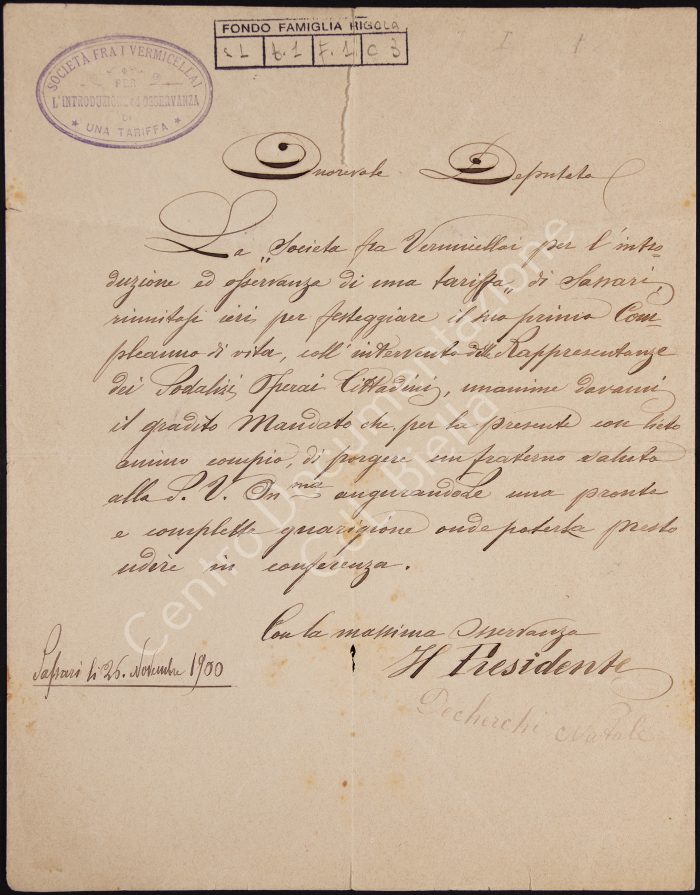 FONDO FAMIGLIA RIGOLA
s L b.1 F.1 C 3
I 1
SOCIETÀ FRA I VERMICELLAI
PER
L'INTRODUZIONE ED OSSERVANZA
DI
* UNA TARIFFA *
Onorevole Deputato
La „Societa fra Vermicellai per l'intro-
duzione ed osservanza di una tariffa„ di Sassari,
riunitasi ieri per festeggiare il suo primo Com-
pleanno di vita, coll'intervento delle Rappresentanze
dei Sodalisi Operai Cittadini, unanime davami
il gradito Mandato che, per la presente con lieto
animo compio, di porgere un fraterno saluto
alla S. V. On.ma augurandole una pronta
e completta guarigione onde poterla presto
udire in conferenza.
Con la massima Osservanza
Il Presidente
Decherchi Natale
Sassari li 26. Novembre 1900
Centro Documentazione
CdL Biella